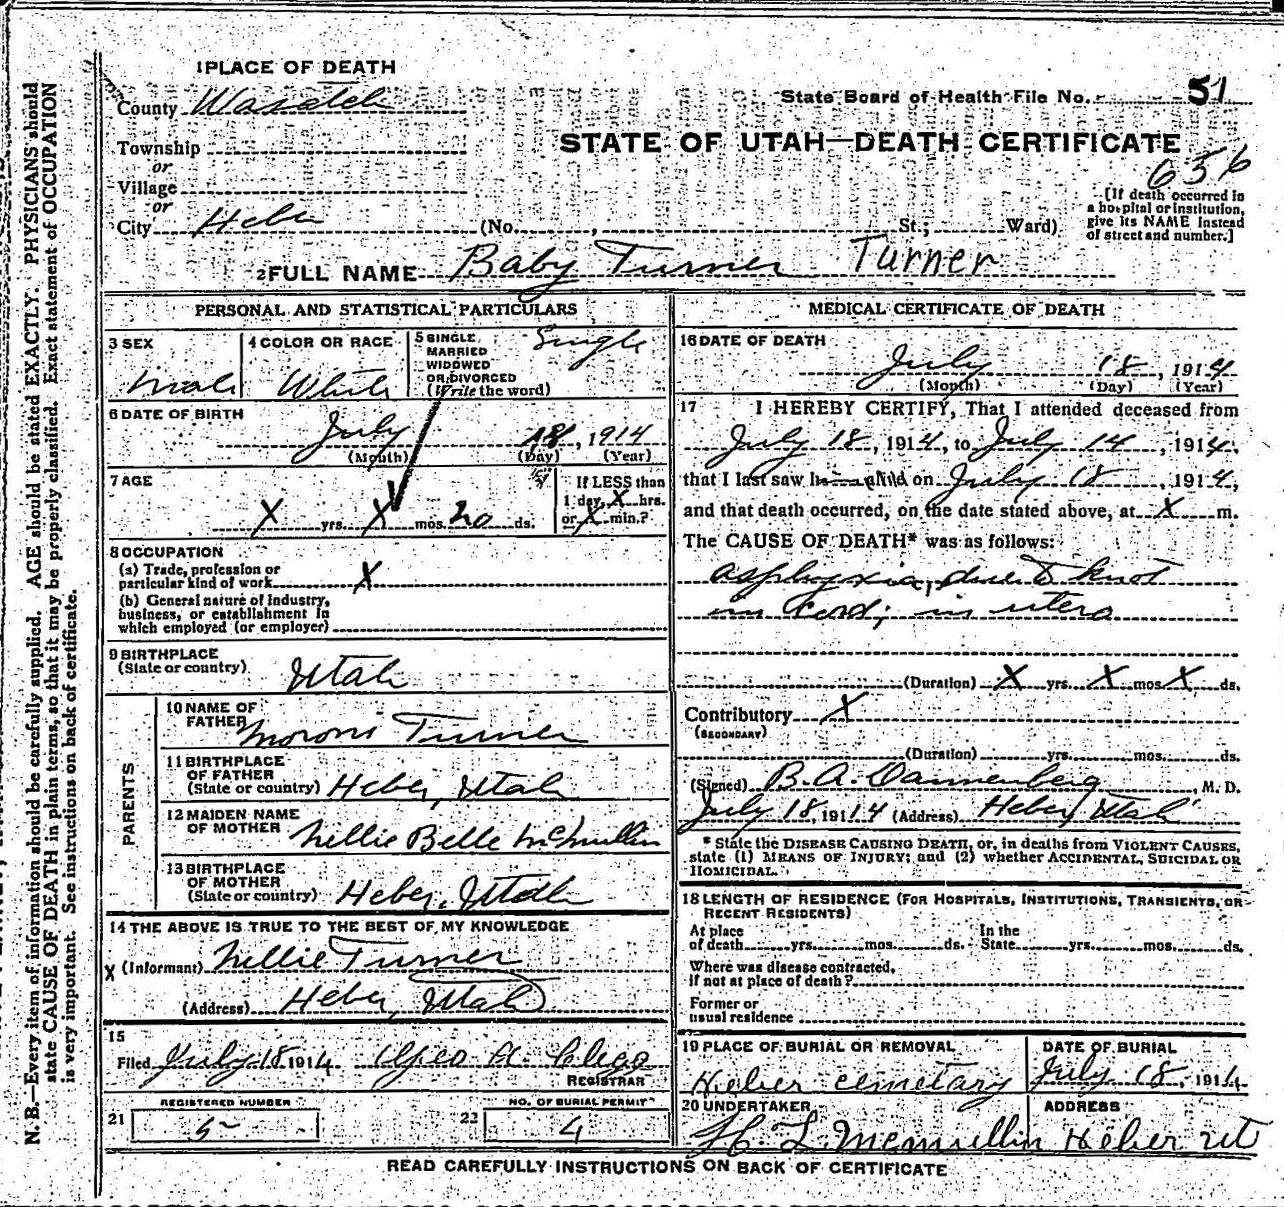 1 PLACE OF DEATH
County Wasatch
State Board of Health File No. 51
STATE OF UTAH—DEATH CERTIFICATE
Township
656
or
Village
or
City Heber (No. , St.; Ward)
[If death occurred in
a hospital or institution,
give its NAME instead
of street and number.]
2 FULL NAME Baby Turner Turner
PERSONAL AND STATISTICAL PARTICULARS
3 SEX
male
4 COLOR OR RACE
White
5 SINGLE,
MARRIED
WIDOWED
OR DIVORCED
(Write the word)
Single
6 DATE OF BIRTH
July 18, 1914
(Month) (Day) (Year)
7 AGE
X yrs. X mos. 20 ds.
If LESS than
1 day, X hrs.
or X min.?
8 OCCUPATION
(a) Trade, profession or
particular kind of work X
(b) General nature of Industry,
business, or establishment in
which employed (or employer)
9 BIRTHPLACE
(State or country) Utah
PARENTS
10 NAME OF
FATHER Moroni Turner
11 BIRTHPLACE
OF FATHER
(State or country) Heber, Utah
12 MAIDEN NAME
OF MOTHER Nellie Belle McMullin
13 BIRTHPLACE
OF MOTHER
(State or country) Heber, Utah
14 THE ABOVE IS TRUE TO THE BEST OF MY KNOWLEDGE
X (Informant) Nellie Turner
(Address) Heber, Utah
15
Filed July 18 1914
REGISTRAR
REGISTERED NUMBER
21 5
NO. OF BURIAL PERMIT
22 4
MEDICAL CERTIFICATE OF DEATH
16 DATE OF DEATH
July 18, 1914
(Month) (Day) (Year)
17 I HEREBY CERTIFY, That I attended deceased from
July 18, 1914, to July 14, 1914,
that I last saw h alive on July 18, 1914,
and that death occurred, on the date stated above, at X m.
The CAUSE OF DEATH* was as follows:
asphyxia, due to knot
in cord; in utero
(Duration) X yrs. X mos. X ds.
Contributory X
(SECONDARY)
(Duration) yrs. mos. ds.
(Signed) B. A. Dannenberg, M. D.
July 18, 1914 (Address) Heber, Utah
* State the DISEASE CAUSING DEATH, or, in deaths from VIOLENT CAUSES,
state (1) MEANS OF INJURY; and (2) whether ACCIDENTAL, SUICIDAL OR
HOMICIDAL.
18 LENGTH OF RESIDENCE (FOR HOSPITALS, INSTITUTIONS, TRANSIENTS, OR
RECENT RESIDENTS)
At place
of death yrs. mos. ds.
In the
State yrs. mos. ds.
Where was disease contracted,
if not at place of death?
Former or
usual residence
19 PLACE OF BURIAL OR REMOVAL
Heber cemetary
DATE OF BURIAL
July 18, 1914
20 UNDERTAKER
McMullin
ADDRESS
Heber Ut
READ CAREFULLY INSTRUCTIONS ON BACK OF CERTIFICATE
N. B.—Every item of information should be carefully supplied. AGE should be stated EXACTLY. PHYSICIANS should
state CAUSE OF DEATH in plain terms, so that it may be properly classified. Exact statement of OCCUPATION
is very important. See instructions on back of certificate.